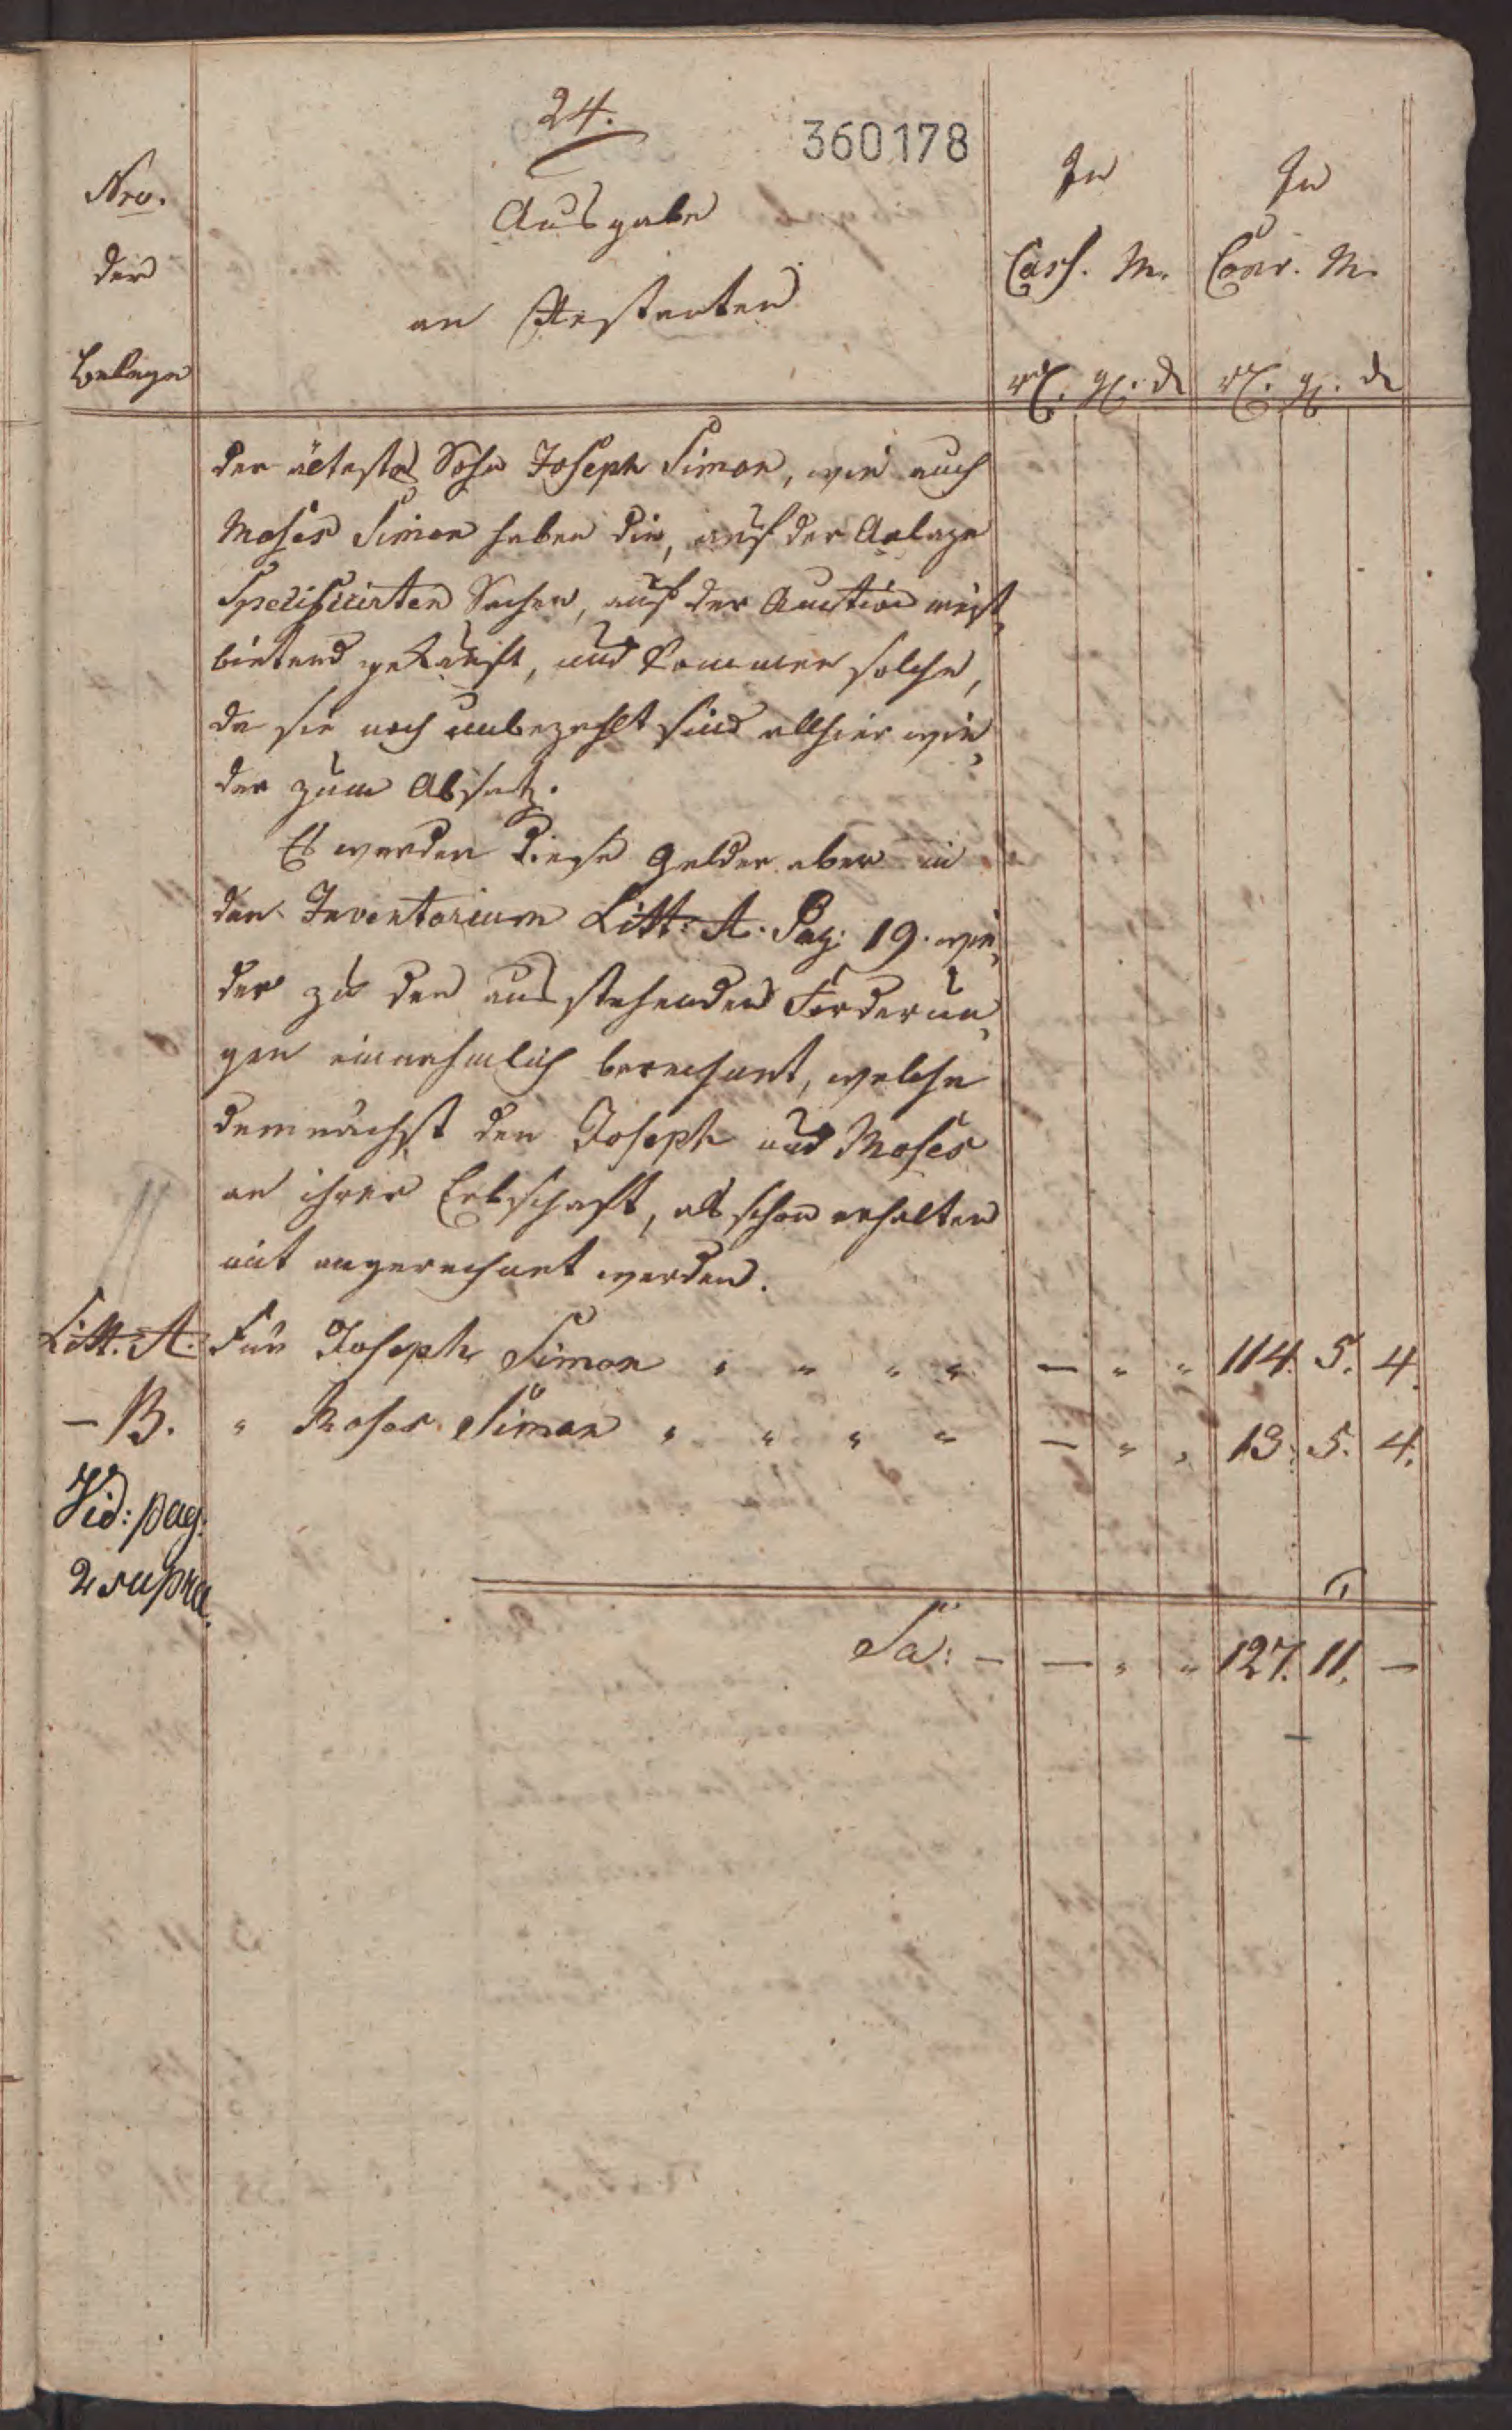 24.
360178
Nro.
der
Belege
Ausgabe
an Restanten
In
Cass. M.
In
Conv. M.
rt. gl. d
rt. gl. d
der älteste Sohn Joseph Simon, wie auch
Moses Simon haben die, auf der Anlage
Specificirten Sachen, auf der Auction meist,
bietend gekauft, und kommen solche,
da sie noch unbezahlt sind allhier wie,
der zum Absatz.
Es werden diese Gelder aber in
den Inventarium Litt: A. Pag: 19. wie,
der zu den ausstehenden Forderun,
gen einnehmlich berechnet, welche
demnächst den Joseph und Moses
an ihrer Erbschaft, als schon erhalten
mit angerechnet werden.
Litt. A. Für Joseph Simon " " " " — " " 114. 5. 4.
— B. " Moses Simon " " " " — " " 13. 5. 4.
Vid: pag:
2 supra.
Sa: — — " " 127. 11. —